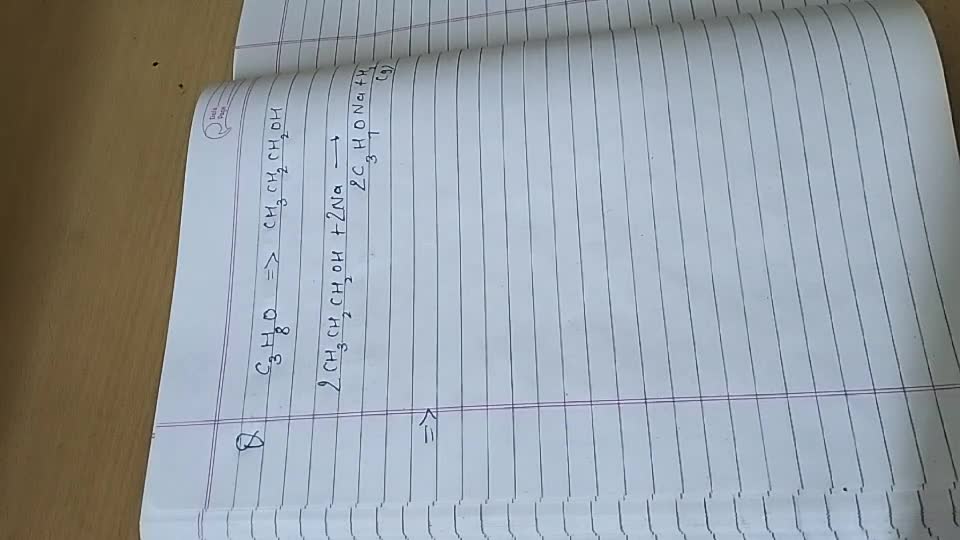 Date
Page
Q C3H8O => CH3CH2CH2OH
2CH3CH2CH2OH + 2Na →
2C3H7ONa + H2
(g)
=>